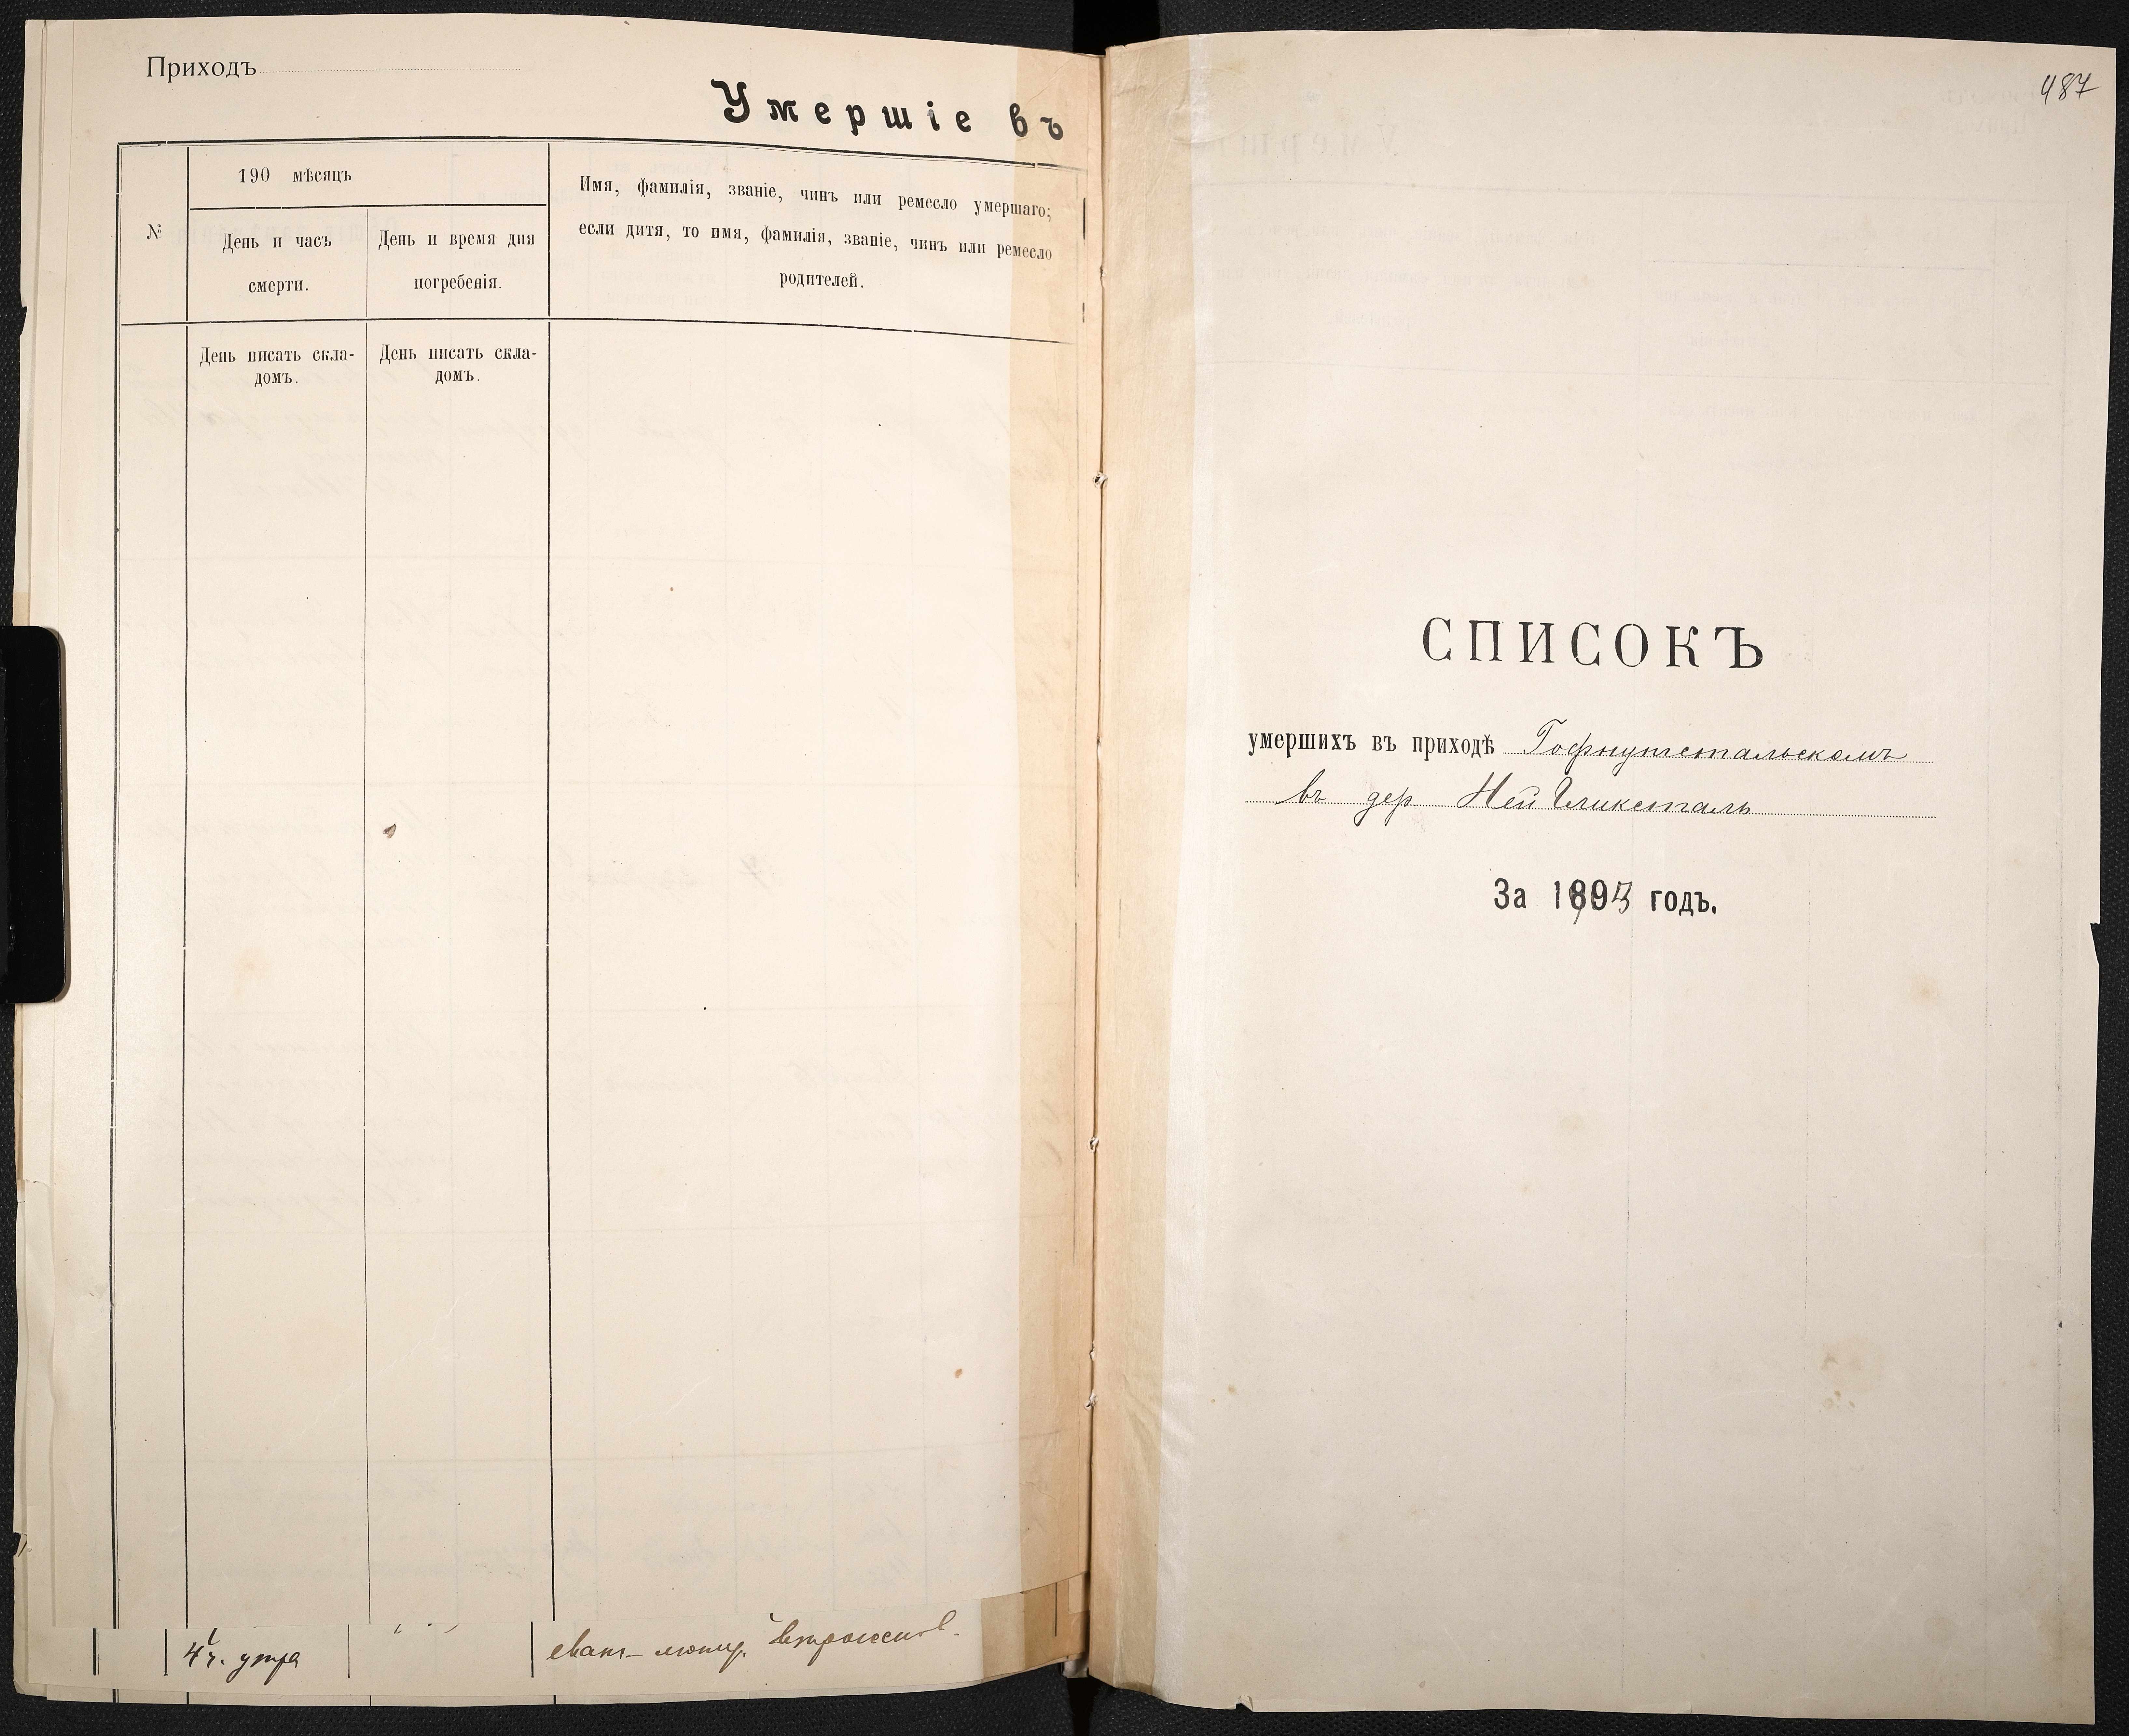 Приходъ
Умершіе въ
№
190 мѣсяцъ
День и часъ
смерти.
День и время дня
погребенія.
Имя, фамилія, званіе, чинъ или ремесло умершаго;
если дитя, то имя, фамилія, званіе, чинъ или ремесло
родителей.
День писать скла-
домъ.
День писать скла-
домъ.
4 ч. утра
еванг-лютер.
487
СПИСОКЪ
умершихъ въ приходѣ Гофнунгстальскомъ
въ дер Ней Гликсталь
За 1903 годъ.